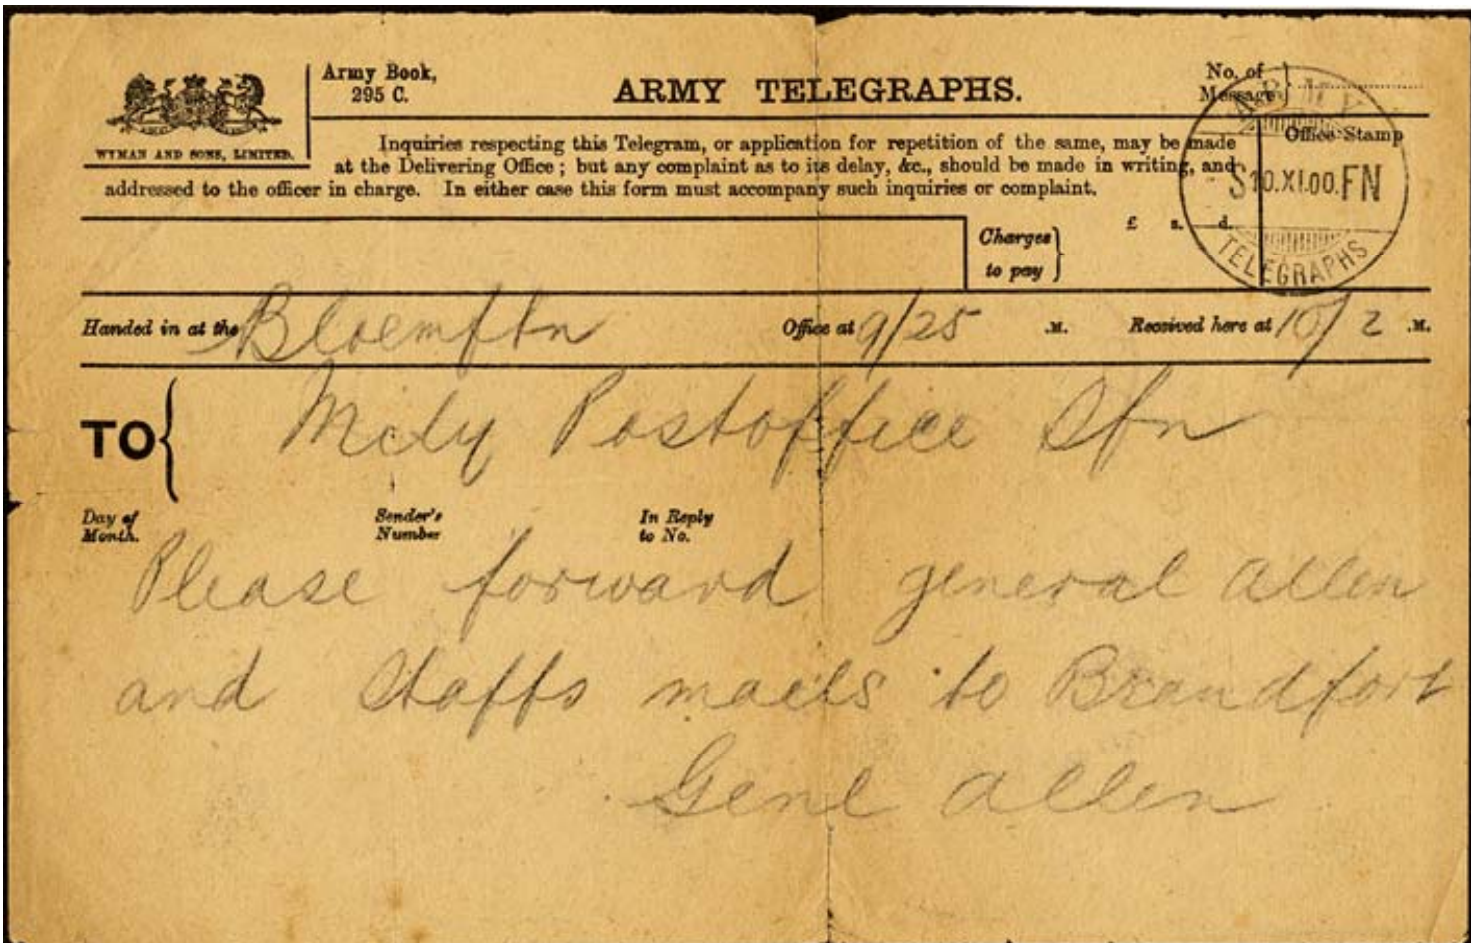 Army Book,
295 C.
ARMY TELEGRAPHS.
No. of
Message
WYMAN AND SONS, LIMITED.
Inquiries respecting this Telegram, or application for repetition of the same, may be made
at the Delivering Office; but any complaint as to its delay, &c., should be made in writing, and
addressed to the officer in charge. In either case this form must accompany such inquiries or complaint.
Office Stamp
ARMY
S 10.XI.00.FN
TELEGRAPHS
Charges
to pay
£ s. d.
Handed in at the Bloemftn Office at 9/25 .M. Received here at 10/2 .M.
TO Mily Postoffice Sfn
Day of
Month.
Sender's
Number
In Reply
to No.
Please forward general allen
and Staffs mails to Brandfort
Genl allen